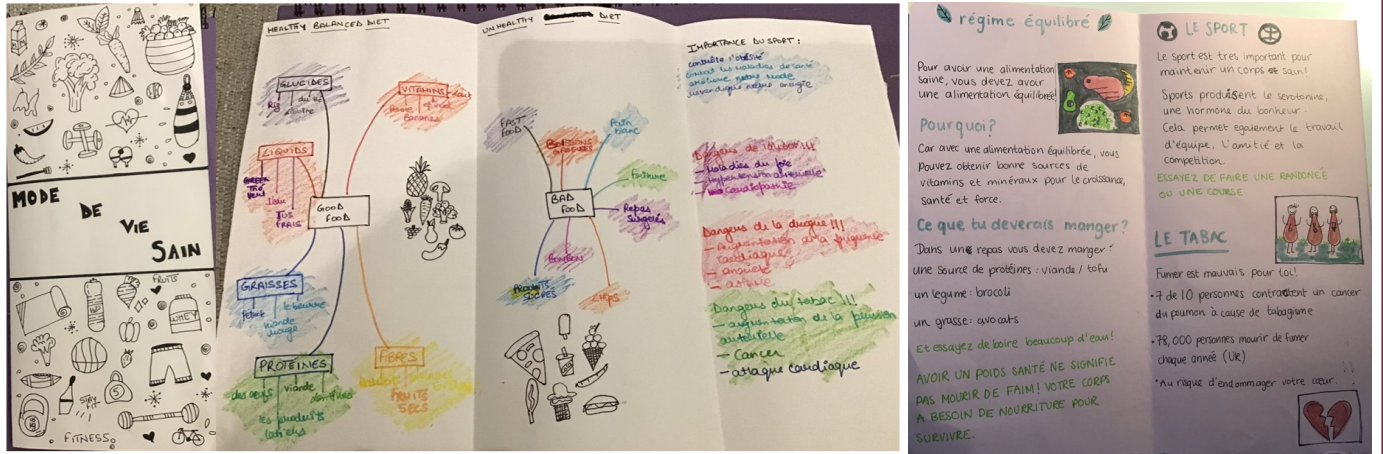 MODE
DE
VIE
SAIN
FRUITS
WHEY
STAY
FIT
5
FITNESS
HEALTHY BALANCED DIET
GLUCIDES
Riz
VITAMINS
bananes
LIQUIDS
GREEN
THÉ
l'eau
JUS
FRAIS
GOOD
FOOD
GRAISSES
le beurre
viande
rouge
PROTEINES
des oeufs
viande
les produits
laitiers
FIBRES
FRUITS
SECS
UNHEALTHY DIET
FAST
FOOD
BOISSONS
Pain
blanc
friture
BAD
FOOD
Repas
surgelés
BONBON
PRODUITS
SUCRÉS
CHIPS
IMPORTANCE DU SPORT :
contrôle l'obésité
combat les maladies de santé
améliore notre mode
notre energie
Dangers de !!!
- Maladies du foie
- Hypertension artérielle
Dangers de la drogue !!!
- augmentation de la fréquence
cardiaque
- anxiété
Dangers du tabac !!!
- augmentation de la pression
artérielle
- Cancer
- attaque cardiaque
régime équilibré
Pour avoir une alimentation
saine, vous devez avoir
une alimentation équilibrée!
Pourquoi?
Car avec une alimentation équilibrée, vous
pouvez obtenir bonne sources de
vitamins et minéraux pour le croissance,
santé et force.
Ce que tu deverais manger?
Dans une repas vous devez manger:
une source de protéines : viande / tofu
un legume: brocoli
un grasse: avocats
Et essayez de boire beaucoup d'eau!
AVOIR UN POIDS SANTÉ NE SIGNIFIE
PAS MOURIR DE FAIM! VOTRE CORPS
A BESOIN DE NOURRITURE POUR
SURVIVRE.
LE SPORT
Le sport est tres important pour
maintenir un corps sain!
Sports produisent le serotonine,
une hormone du bonheur
Cela permet egalement le travail
d'équipe, l'amitié et la
competition.
ESSAYEZ DE FAIRE UNE RANDONEÉ
OU UNE COURSE
LE TABAC
Fumer est mauvais pour toi!
• 7 de 10 personnes contractent un cancer
du poumon à cause de tabagisme
• 78,000 personnes mourir de fumer
chaque année (UK)
• Au risque d'endommager votre cœur.